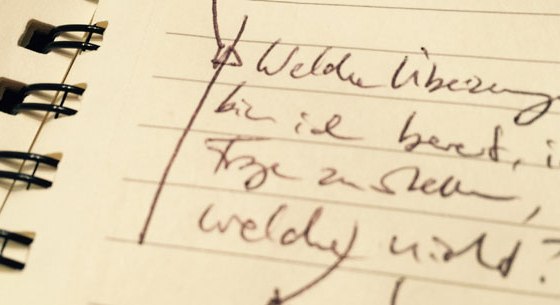 Welche Überzeug
bin ich bereit, i
Frage zu stellen,
welche nicht?